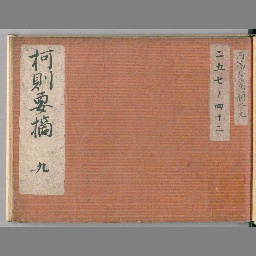 柯則要摘 九
二五七ノ四十二